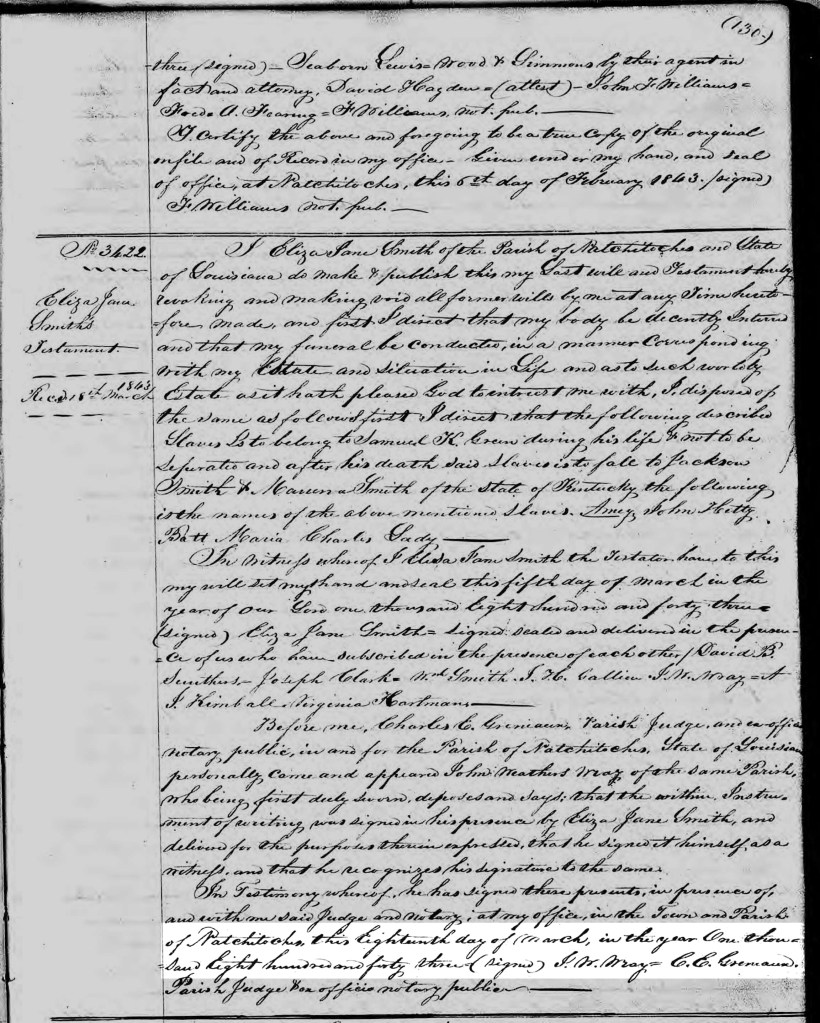 (130.)
three (signed) = Seaborn Lewis = Wood & Simmons by their agent in
fact and attorney, David Hayden = (attest) - John F Williams =
A. Fearing = F Williams not. pub.
I certify the above and foregoing to be a true Copy of the original
on file and of Record in my office - Given under my hand, and seal
of office, at Natchitoches, this 6th day of February 1843. (signed)
F. Williams not. pub.
No 3422.
Eliza Jane
Smith's
Testament.
Recd 18th March 1843
I Eliza Jane Smith of the Parish of Natchitoches and State
of Louisiana do make & publish this my Last will and Testament hereby
revoking and making void all former wills by me at any Time hereto-
=fore made, and first I direct that my body be decently Interred
and that my funeral be conducted, in a manner Corresponding
with my Estate and situation in Life and as to such worldly
Estate as it hath pleased God to intrust me with, I, disposed of
the same as follows first I direct that the following described
Slaves is to belong to Samuel K. Green during his life & not to be
separated and after his death said slaves is to fall to Jackson
Smith & Smith of the State of Kentucky the following
is the names of the above mentioned slaves. Amey, John Hetty
Batt Maria Charles Lady
In witness whereof I Eliza Jane Smith the Testator have to this
my will set my hand and seal this fifth day of March in the
year of our Lord one thousand Eight hundred and forty three =
(signed) Eliza Jane Smith = signed sealed and delivered in the presen-
=ce of us who have subscribed in the presence of each other / David B.
Smithers - Joseph Clark = Wm Smith. J. H. J. W. Wray = A
J. Kimball. Virginia Hartman
Before me, Charles E. Greneaux, Parish Judge, and ex-officio
notary public, in and for the Parish of Natchitoches, State of Louisiana
personally came and appeared John Weathers Wray, of the same Parish,
who being first duly sworn, deposes and says; that the within Instru-
ment of writing was signed in his presence by Eliza Jane Smith, and
delivered for the purposes therein expressed, that he signed it himself, as a
witness, and that he recognizes his signature to the same.
In Testimony whereof, he has signed these presents, in presence of,
and with me said Judge and notary, at my office, in the Town and Parish
of Natchitoches, this Eighteenth day of March, in the year One thou=
=sand Eight hundred and forty three (signed) J. W. Wray = C. E. Greneaux.
Parish Judge & ex officio notary public